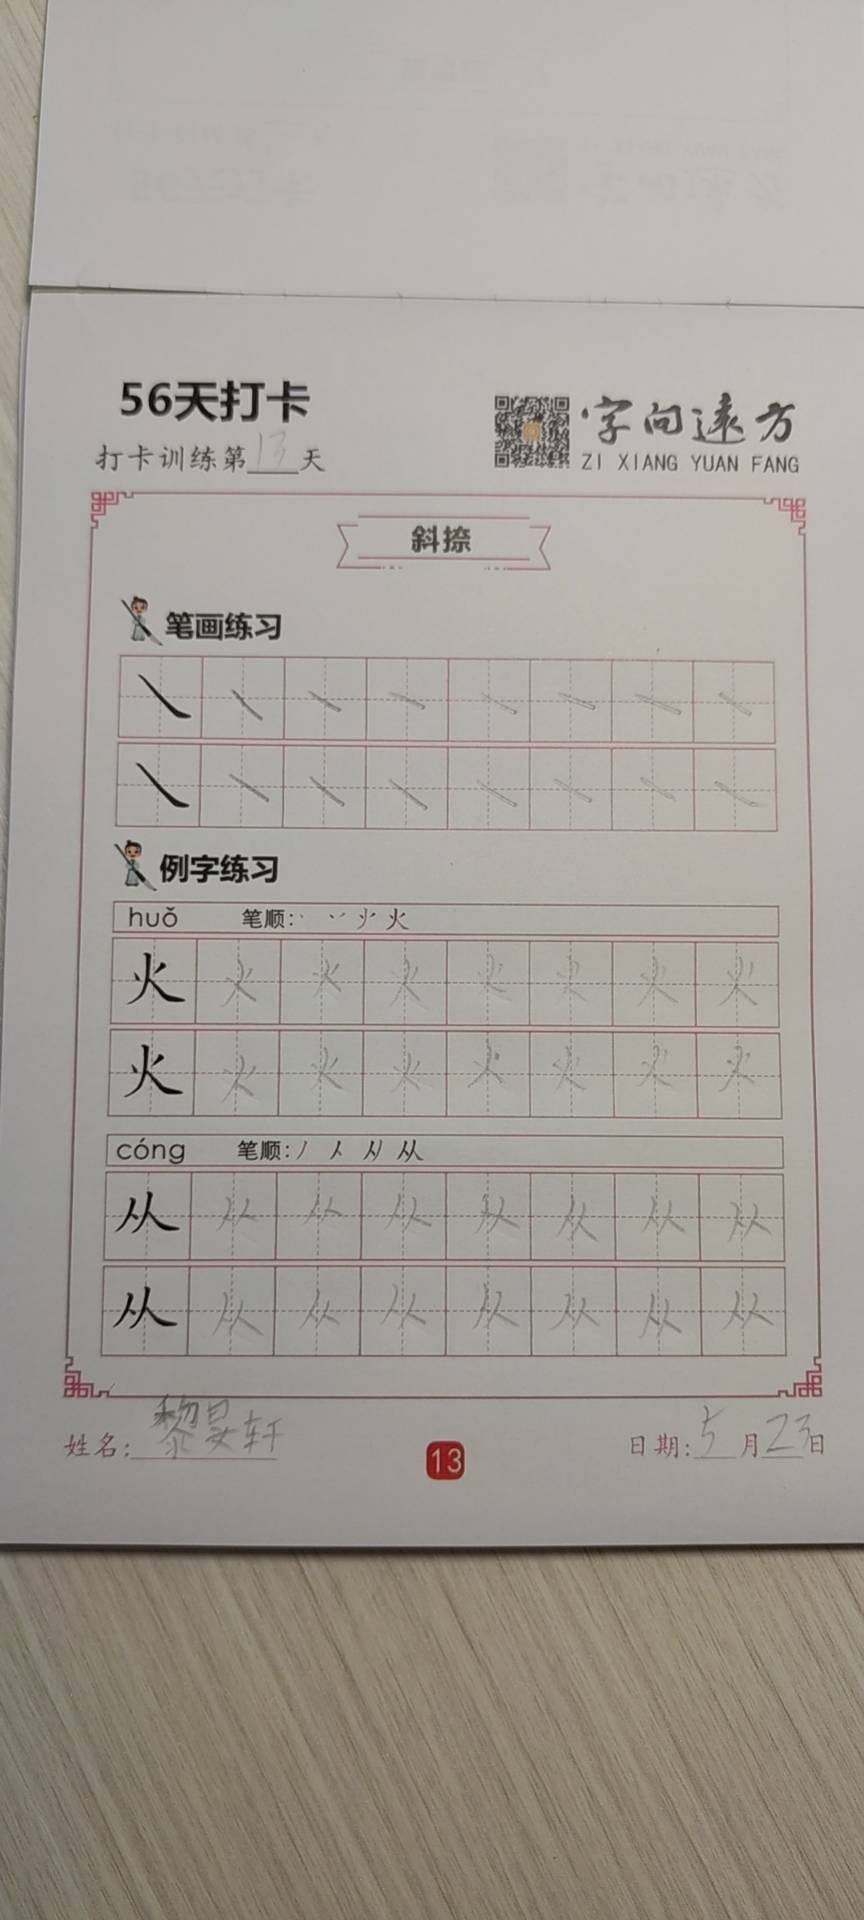 56天打卡
字向远方
打卡训练第13天
ZI XIANG YUAN FANG
斜捺
笔画练习
例字练习
huǒ 笔顺: 丶 丷 火
火 火 火 火 火 火 火 火
火 火 火 火 火 火 火 火
cóng 笔顺: 丿 人 从
从 从 从 从 从 从 从 从
从 从 从 从 从 从 从 从
姓名: 黎昊轩
13
日期: 5月23日